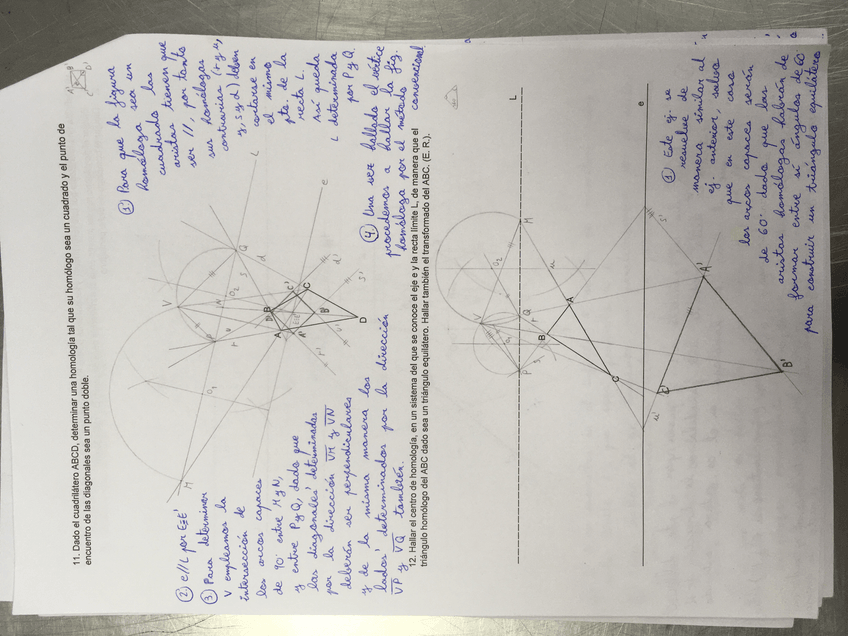 11. Dado el cuadrilátero ABCD, determinar una homología tal que su homólogo sea un cuadrado y el punto de
encuentro de las diagonales sea un punto doble.
① Para que la figura
homóloga sea un
cuadrado las
aristas tienen que
ser //, por tanto
sus homólogas
contrarias (r y u,
y, s y t) deben
cortarse en
el mismo
pto. de la
recta L.
Así queda
L determinada
por P y Q.
② e//L por E≡E'
③ Para determinar
V empleamos la
intersección de
los arcos capaces
de 90° entre M y N,
y entre P y Q, dado que
las diagonales' determinadas
por la dirección VM y VN
deberán ser perpendiculares
y de la misma manera los
lados' determinados por la dirección
VP y VQ también.
④ Una vez hallado el vértice
procedemos a hallar la fig.
homóloga por el método convencional
M
O₁
P
V
N
O₂
Q
L
e
r
s
d
A
B
C
D
A'
B'
C'
r'
s'
d'
12. Hallar el centro de homología, en un sistema del que se conoce el eje e y la recta límite L, de manera que el
triángulo homólogo del ABC dado sea un triángulo equilátero. Hallar también el transformado del ABC. (E. R.).
L
e
P
V
Q
M
O₁
O₂
r
s
u
A
B
C
A'
B'
C'
s'
u'
① Este ej se
resuelve de
manera similar al
ej. anterior, salvo
que en este caso
los arcos capaces serán
de 60° dado que las
aristas homólogas habrán de
formar entre sí ángulos de 60°
para construir un triángulo equilátero